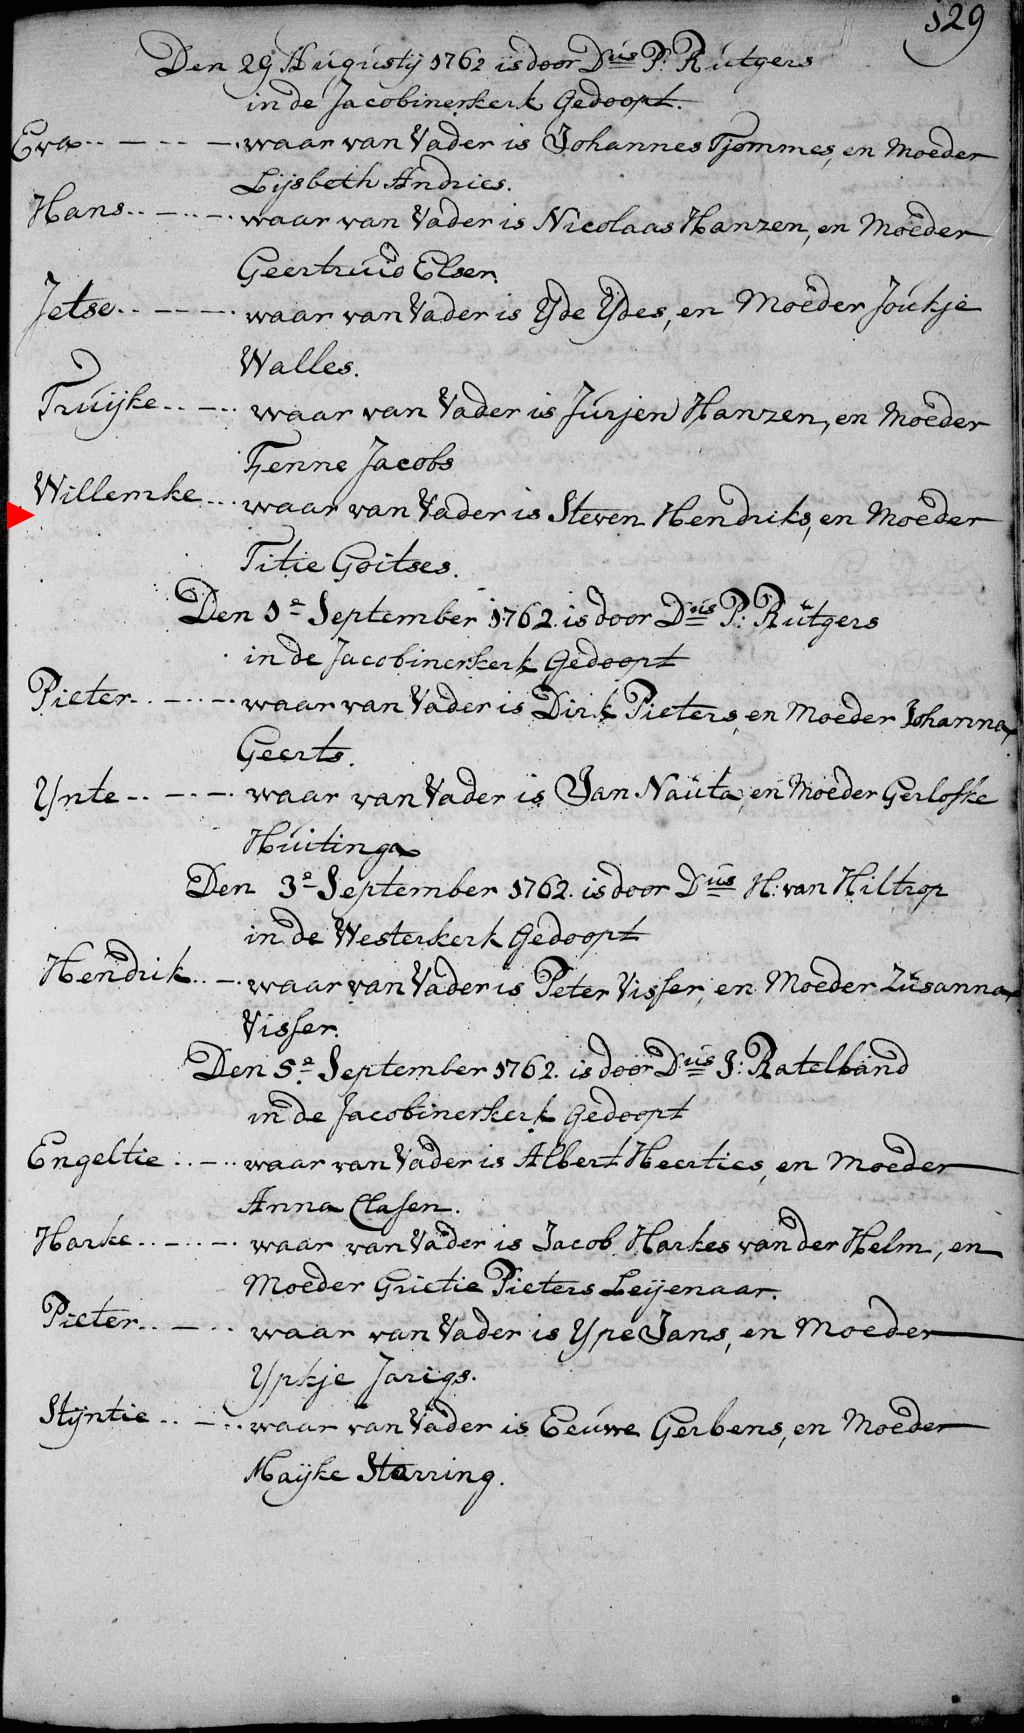 129
Den 29 Augustij 1762 is door Dus P: Rutgers
in de Jacobinerkerk Gedoopt.
Eva.. — .. — . waar van Vader is Johannes Tjommes, en Moeder
Lijsbeth Andries.
Hans.. — .. — . waar van Vader is Nicolaas Hanzen, en Moeder
Geertruid Elser.
Jetse.. — .. — . waar van Vader is Yde Ydes, en Moeder Joukje
Walles.
Truijke.. — .. waar van Vader is Jurjen Hanzen, en Moeder
Tjenne Jacobs
Willemke... waar van Vader is Steven Hendriks, en Moeder
Titie Goitses.
Den 1e September 1762. is door Dus P: Rutgers
in de Jacobinerkerk Gedoopt
Pieter.. — .. — . waar van Vader is Dirk Pieters, en Moeder Johanna
Geerts.
Ynte.. — .. — . waar van Vader is Jan Nauta, en Moeder Gerlofke
Huitinga
Den 3e September 1762. is door Dus H: van Hiltrop
in de Westerkerk Gedoopt
Hendrik.. — . waar van Vader is Peter Visser, en Moeder Zusanna
Visser.
Den 5e September 1762. is door Dus J: Ratelband
in de Jacobinerkerk Gedoopt
Engeltie.. — .. waar van Vader is Albert Heerties, en Moeder
Anna Clasen.
Harke.. — .. — . waar van Vader is Jacob Harkes van der Helm, en
Moeder Grietie Pieters Leijenaar.
Pieter.. — .. waar van Vader is Ype Jans, en Moeder
Ypkje Jarigs.
Stijntie.. — .. waar van Vader is Eeuwe Gerbens, en Moeder
Maijke Starring.